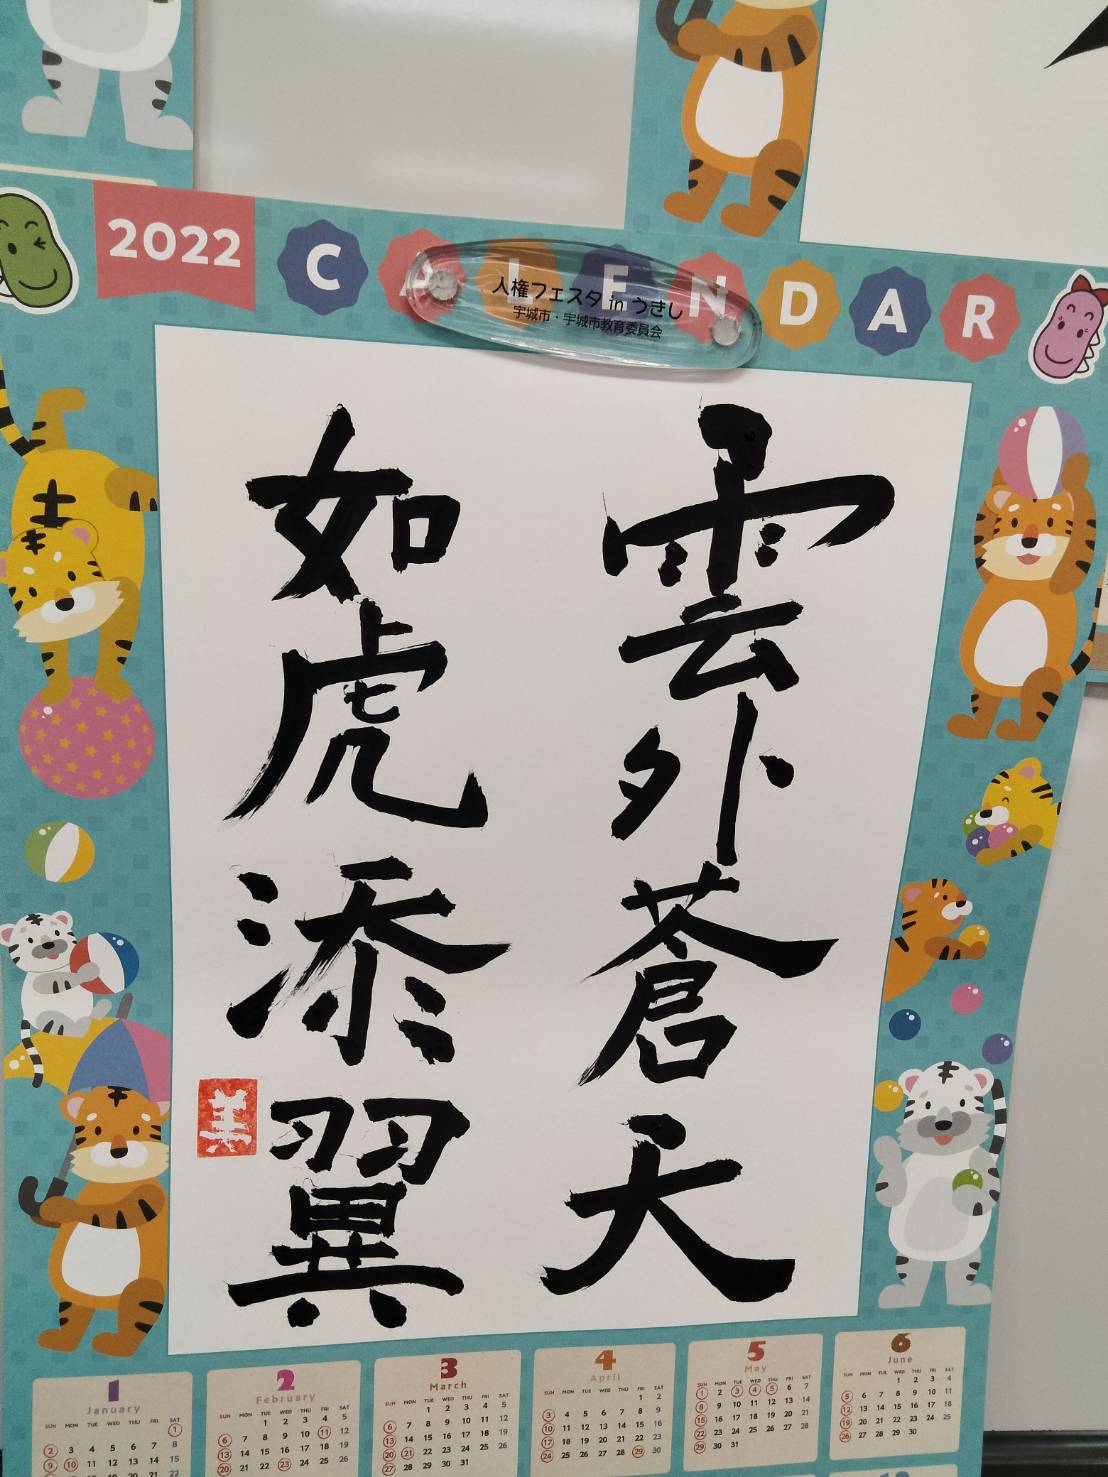 2022 CALENDAR
人権フェスタ in うきし
宇城市・宇城市教育委員会
雲外蒼天
如虎添翼
美
1 January
SUN MON TUE WED THU FRI SAT
1
2 3 4 5 6 7 8
9 10 11 12 13 14 15
2 February
SUN MON TUE WED THU FRI SAT
1 2 3 4 5
6 7 8 9 10 11 12
13 14 15 16 17 18 19
20 21 22 23 24 25 26
3 March
SUN MON TUE WED THU FRI SAT
1 2 3 4 5
6 7 8 9 10 11 12
13 14 15 16 17 18 19
20 21 22 23 24 25 26
27 28 29 30 31
4 April
SUN MON TUE WED THU FRI SAT
1 2
3 4 5 6 7 8 9
10 11 12 13 14 15 16
17 18 19 20 21 22 23
24 25 26 27 28 29 30
5 May
SUN MON TUE WED THU FRI SAT
1 2 3 4 5 6 7
8 9 10 11 12 13 14
15 16 17 18 19 20 21
22 23 24 25 26 27 28
29 30 31
6 June
SUN MON TUE WED THU FRI SAT
1 2 3 4
5 6 7 8 9 10 11
12 13 14 15 16 17 18
19 20 21 22 23 24 25
26 27 28 29 30